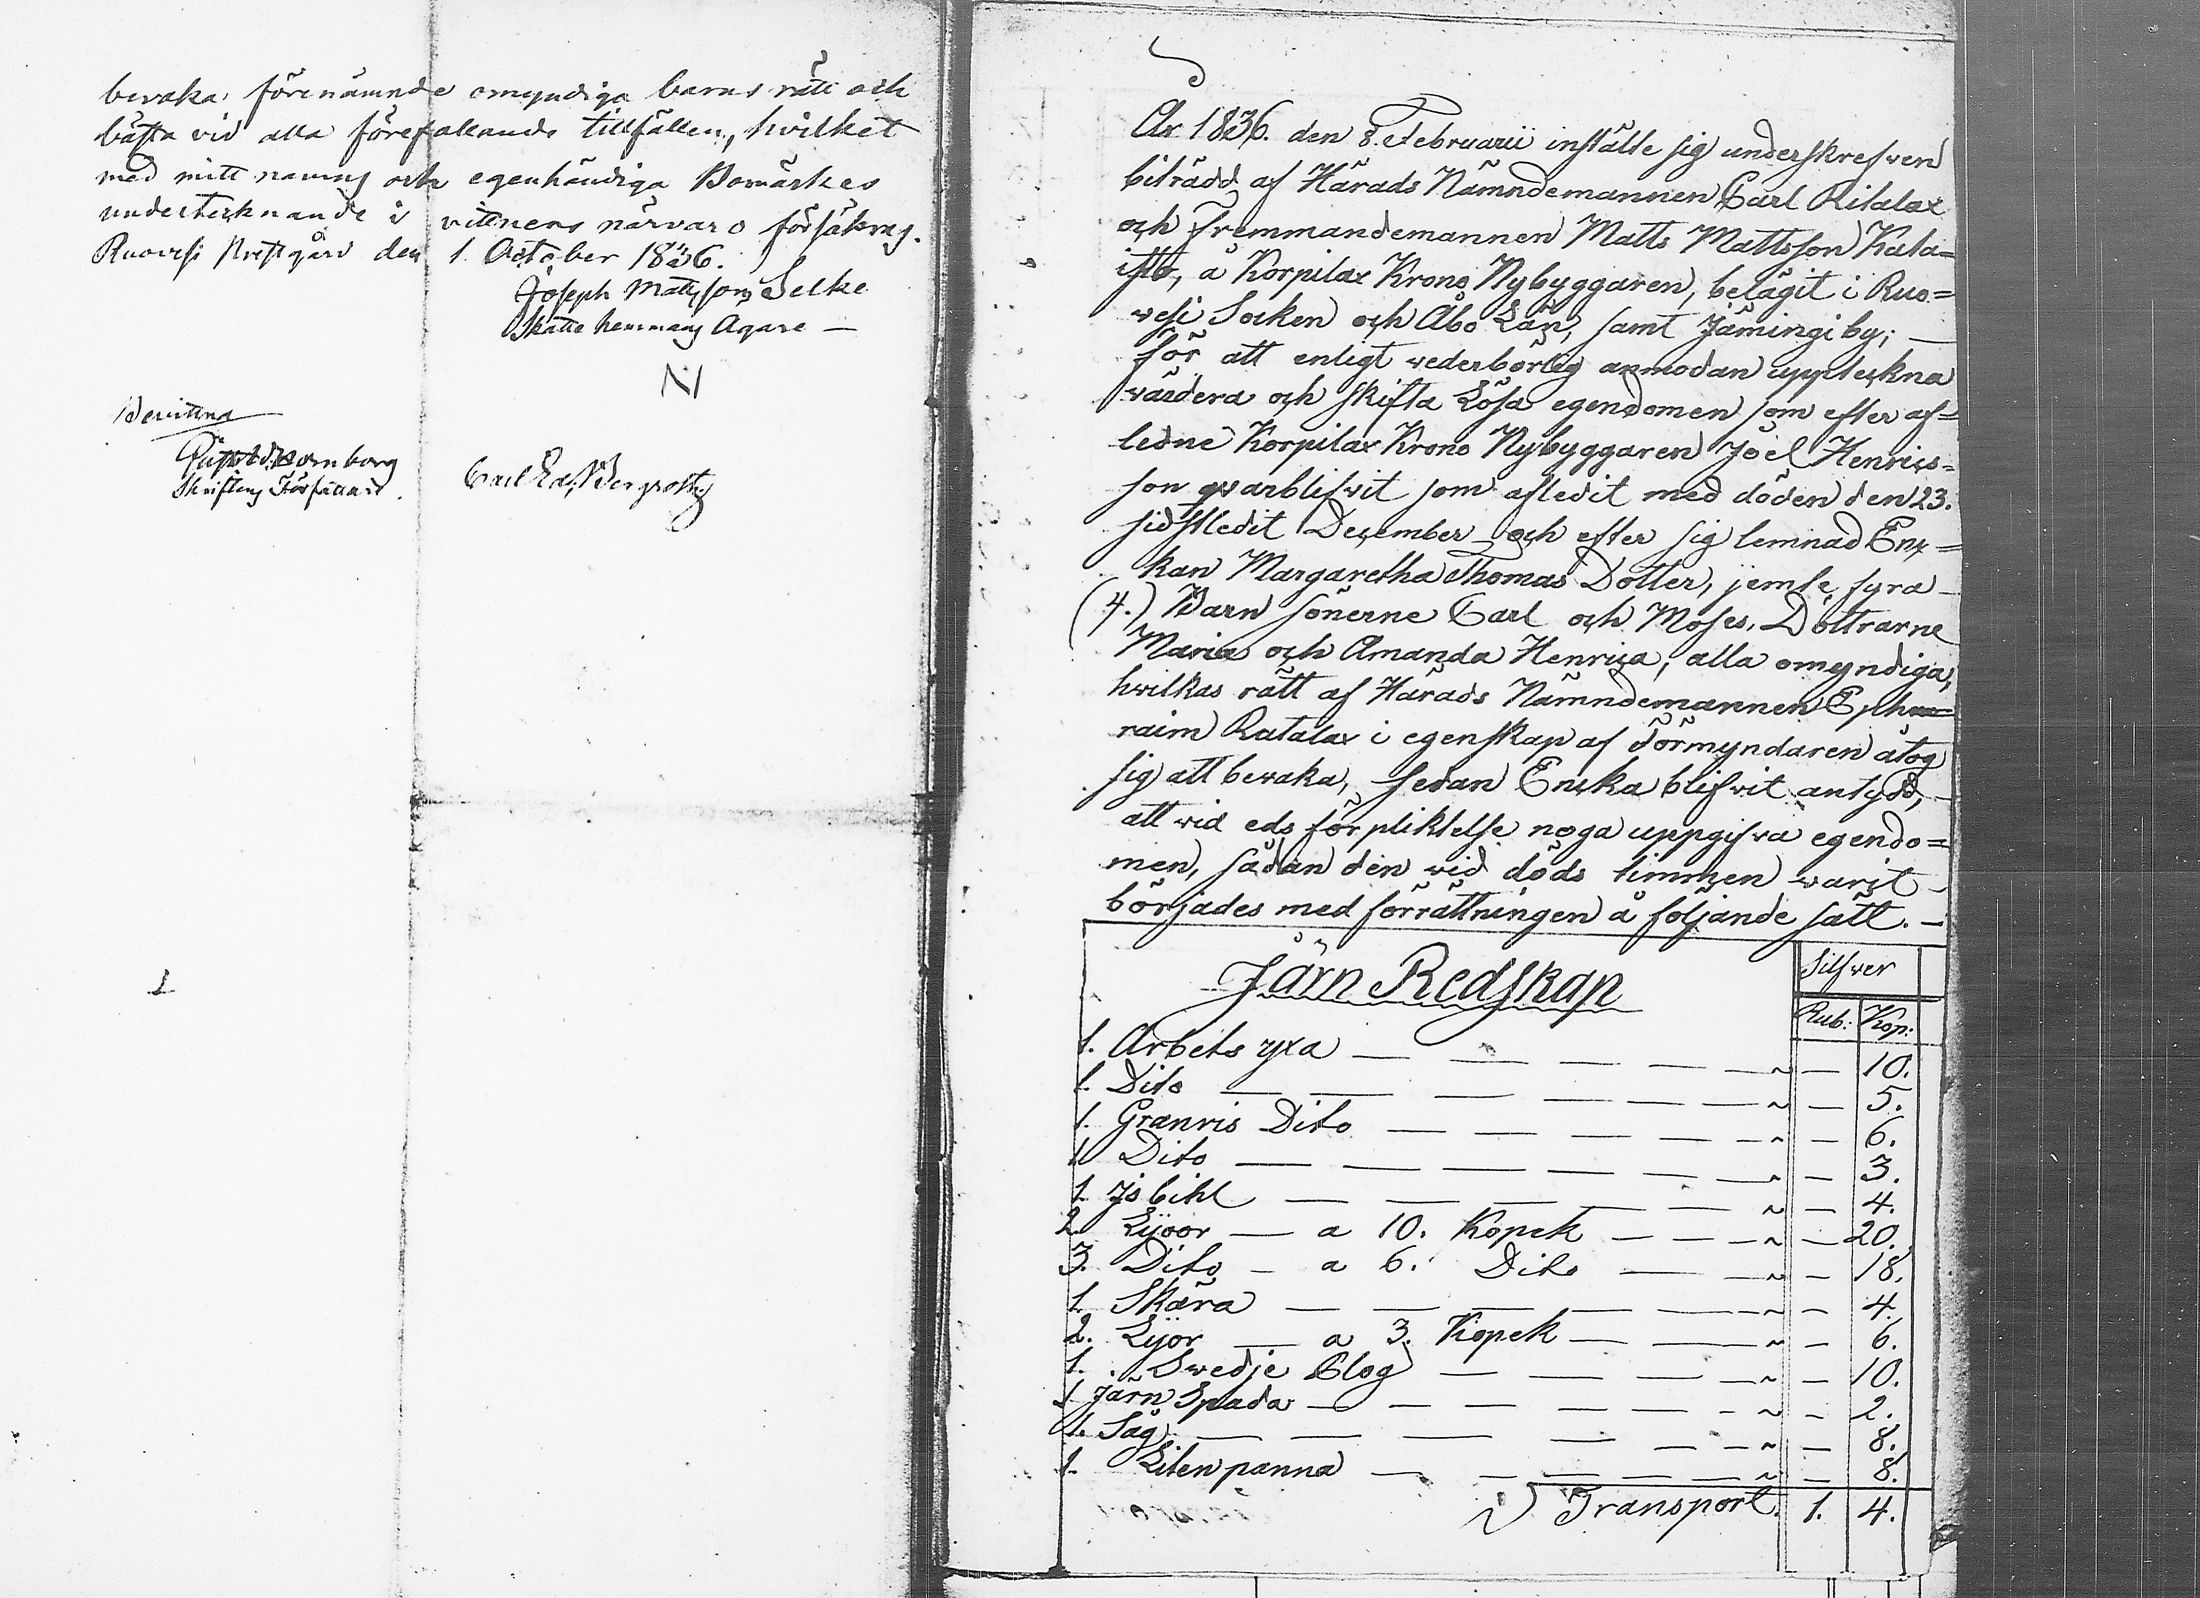 bevaka förenämnde omyndiga barns rätt och
bästa vid alla förefallande tillfällen, hvilket
med mitt namns och egenhändiga Bomärkes
undertecknande i vittnens närvaro försäkras.
Ruovesi Prestgård den 1 October 1836.
Joseph Mattsson Selke
Skatte hemmans Ägare —
Bevittna
Skriftens Författare.
Carl Ed. Bergroth
År 1836. den 8. Februarii instälte sig underskrefven
biträdd af Härads Nämndemannen Carl Ritalax
och Fremmandemannen Matts Mattsson Kuta=
isto, å Korpilax Krono Nybyggaren, belägit i Ruo=
vesi Socken och Åbo Län, samt Jämingi by; —
för att enligt vederbörlig anmodan uppteckna
värdera och skifta Lösa egendomen som efter af=
ledne Korpilax Krono Nybyggaren Joel Henrics=
son qvarblifvit som afledit med döden den 23.
sidstledit December och efter sig lemnad En=
kan Margaretha Thomas Dotter, jemte fyra
(4.) Barn Sönerne Carl och Moses, Döttrarne
Maria och Amanda Henrica, alla omyndiga,
hvilkas rätt af Härads Nämndemannen Eph
raim Rutalax i egenskap af Förmyndaren åtog
sig att bevaka, sedan Enka blifvit antydd,
att vid eds förpliktelse noga uppgifva egendo=
men, sådan den vid döds timmen varit
börjades med förrättningen å följande sätt. —
Järn Redskap Silfver
Rub: Kop:
1. Arbets yxa — — — — — ~ — 10.
1. Dito — — — — — — ~ — 5.
1. Granris Dito — — — — — ~ — 6.
1 Dito — — — — — — ~ — 3.
1. Js bihl — — — — — ~ — 4.
2. Lijoor — a 10. Kopek — — — ~ — 20.
3. Dito — a 6. Dito — — ~ — 18.
1. Skära — — — — — — ~ — 4.
2. Lijor — a 3. Kopek — — — ~ — 6.
1. Swedje Plog — — — — ~ — 10.
1 Järn Spada — — — — — ~ — 2.
1. Såg — — — — — — ~ — 8.
1. Liten panna — — — — — ~ — 8.
Transport. 1. 4.